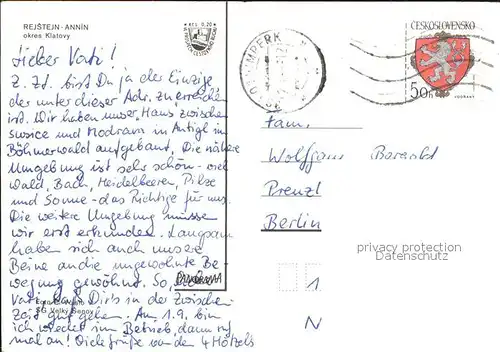 REJŠTEJN-ANNÍN
okres Klatovy
Lieber Vati!
Z. Zt. bist Du ja der Einzige
der unter dieser Adr. zu erreichen
ist. Wir haben unser Haus zwischen
Susice und Modrava in Antigl im
Böhmerwald aufgebaut. Die nähere
Umgebung ist sehr schön - viel
Wald, Bach, Heidelbeeren, Pilze
und Sonne - das Richtige für uns.
Die weitere Umgebung müssen
wir erst erkunden. Langsam
haben sich auch unsere
Beine an die ungewohnte Be-
wegung gewöhnt. So, lieber
Vati, laß Dirs in der Zwischen-
zeit gut gehen. Am 1.9. bin
ich wieder im Betrieb, dann ruf
mal an! Viele Grüße von den 4
PANORAMA
SG Velký Šenov
Kčs 0,20
VIMPERK
ČESKOSLOVENSKO
50h
Fam.
Wolfgang
Prenzl
Berlin
1
N
privacy protection
Datenschutz